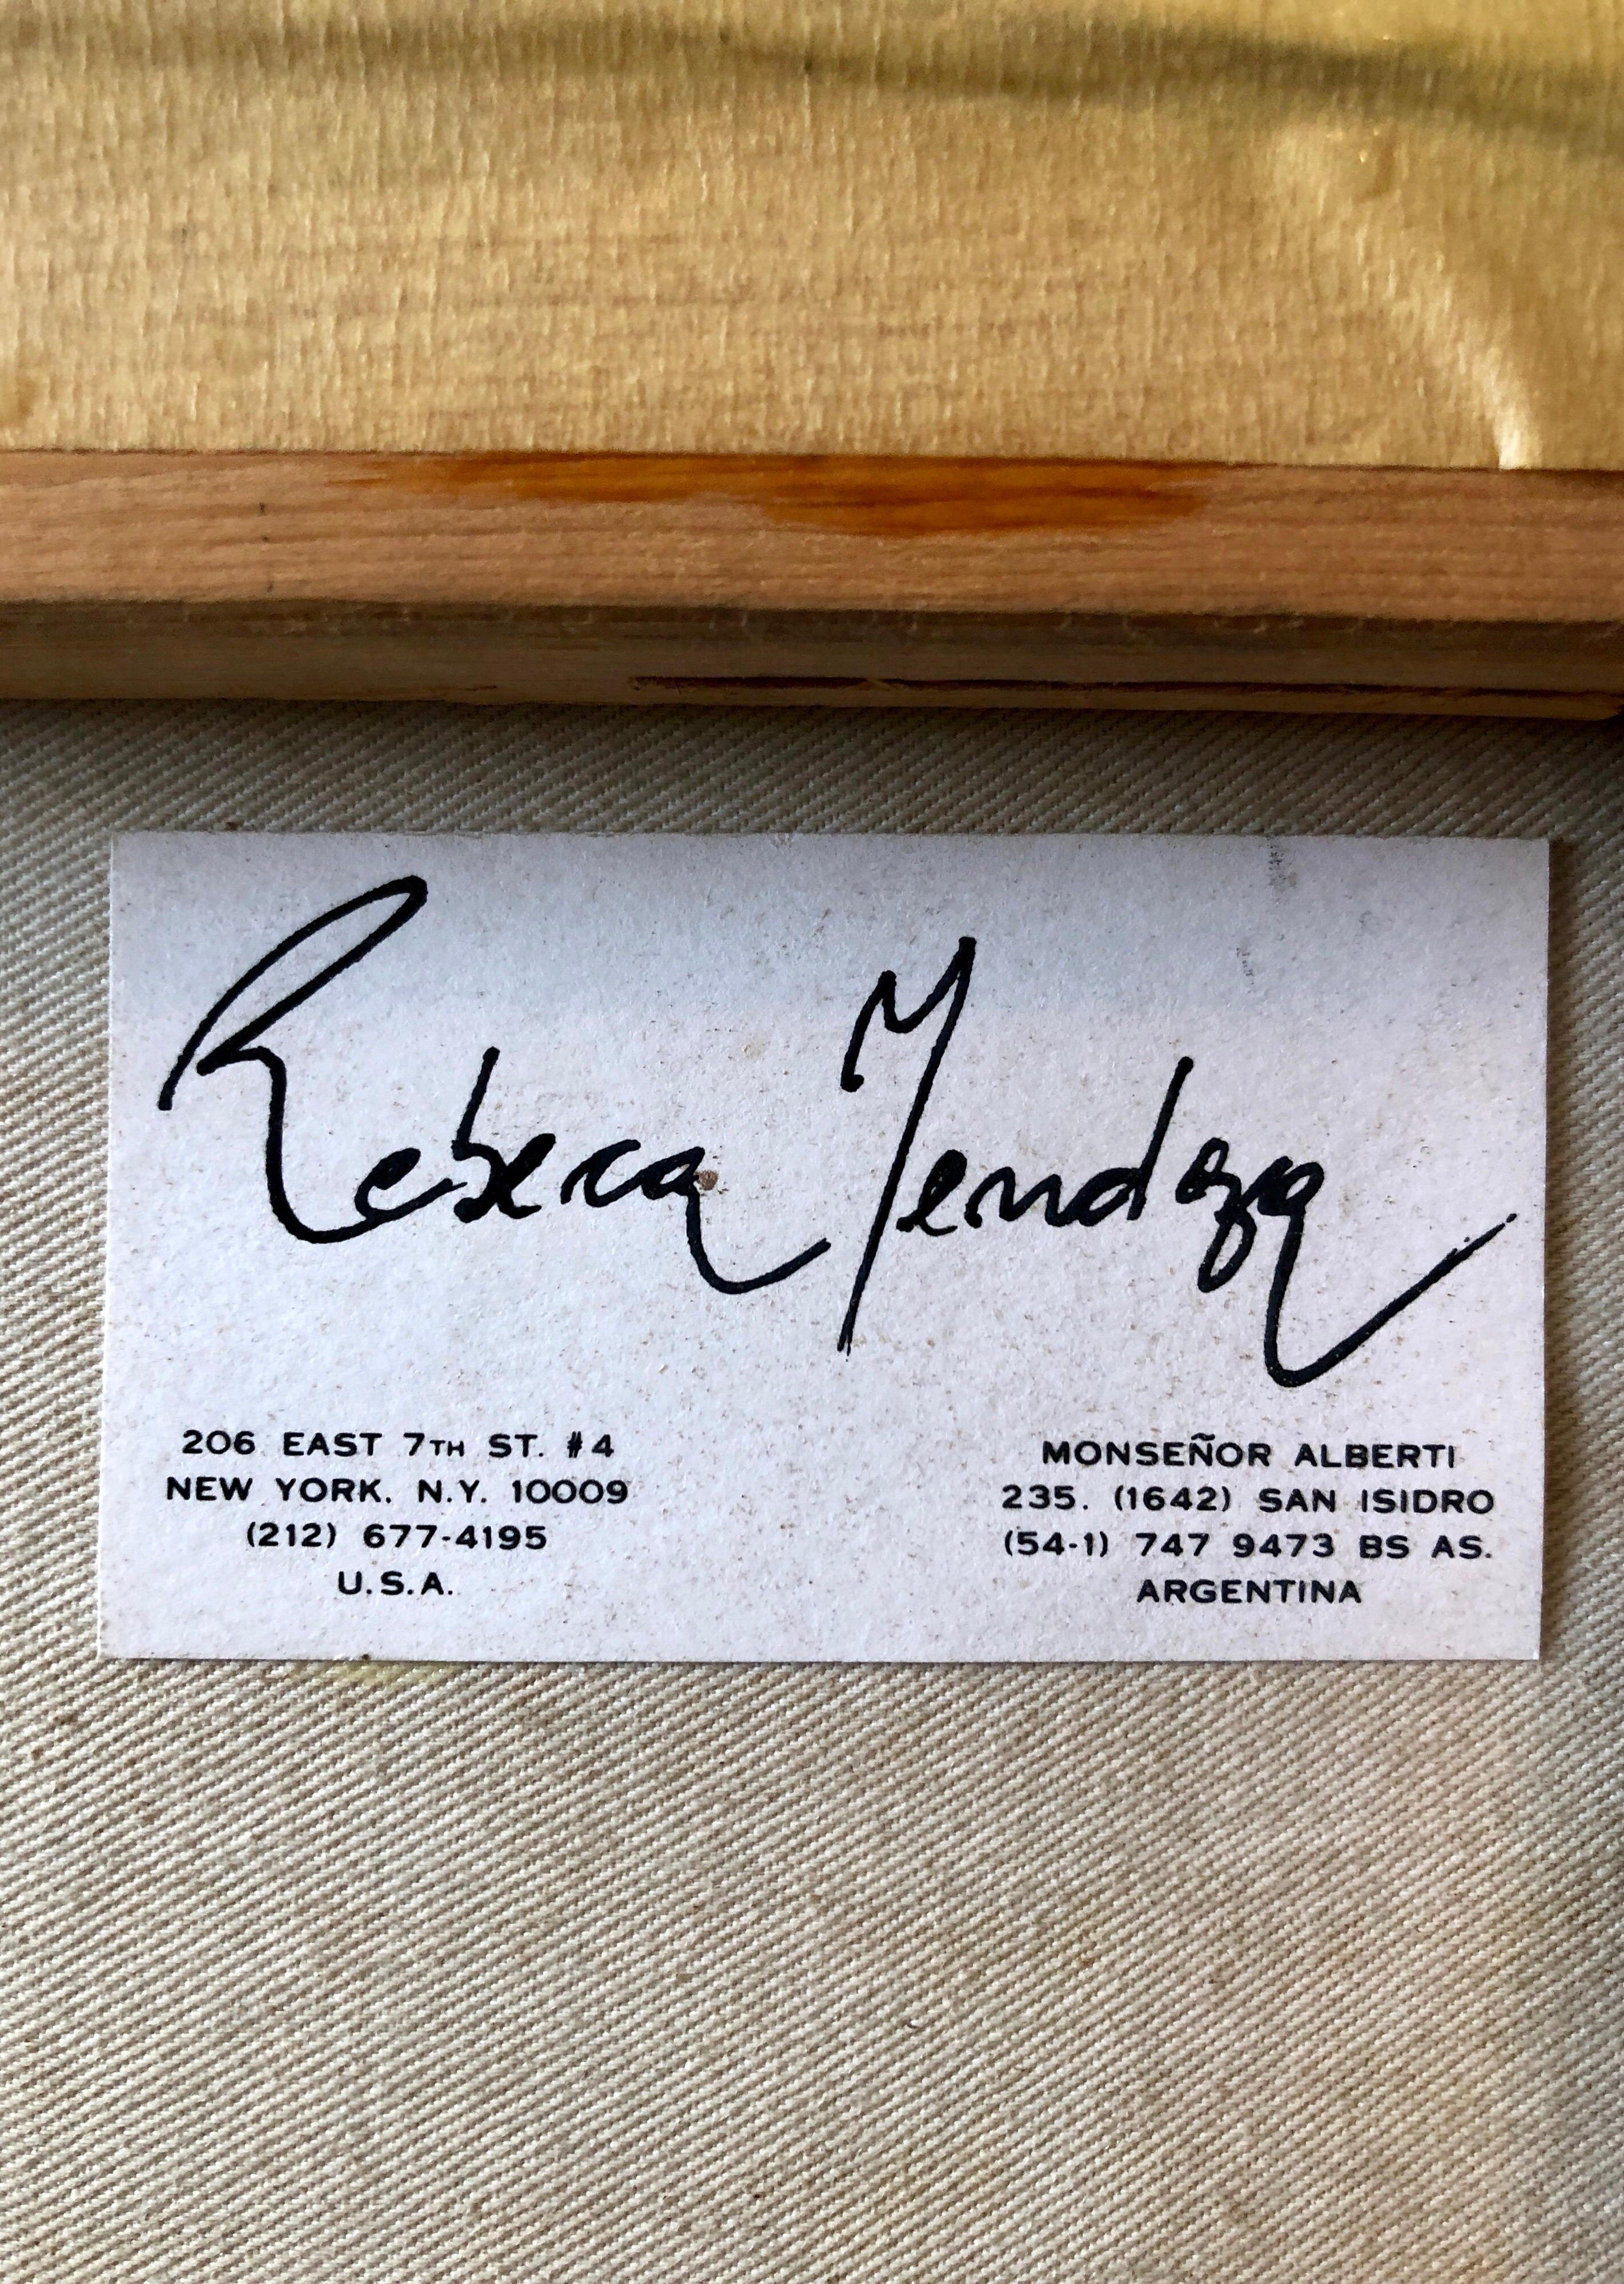 Rebeca Mendoza
206 EAST 7TH ST. #4
NEW YORK, N.Y. 10009
(212) 677-4195
U.S.A.
MONSEÑOR ALBERTI
235. (1642) SAN ISIDRO
(54-1) 747 9473 BS AS.
ARGENTINA